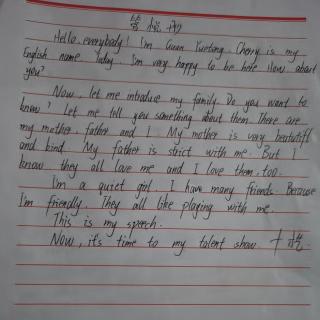 Hello, everybody! I'm Guan Yuetong. Cherry is my
English name. Today, I'm very happy to be here. How about
you?
Now, let me introduce my family. Do you want to
know? Let me tell you something about them. There are
my mother, father and I. My mother is very beautiful
and kind. My father is strict with me. But I
know they all love me and I love them, too.
I'm a quiet girl. I have many friends. Because
I'm friendly. They all like playing with me.
This is my speech.
Now, it's time to my talent show.